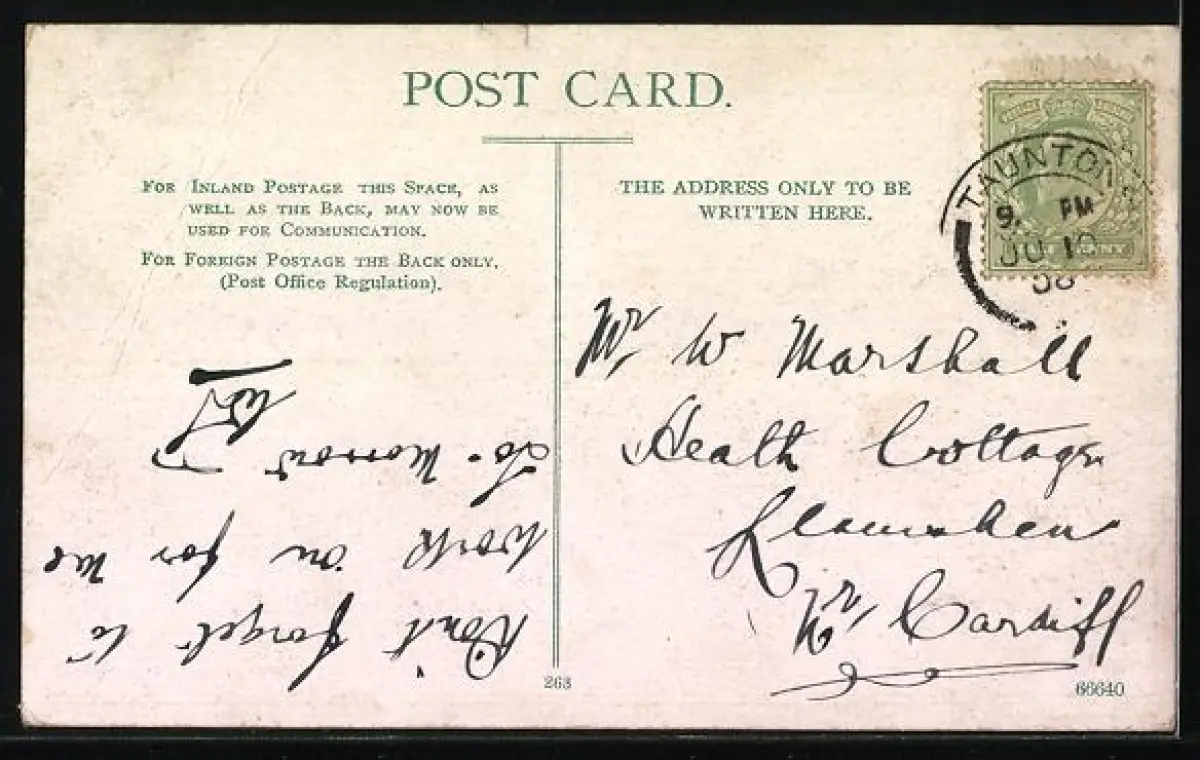 POST CARD.
FOR INLAND POSTAGE THIS SPACE, AS
WELL AS THE BACK, MAY NOW BE
USED FOR COMMUNICATION.
FOR FOREIGN POSTAGE THE BACK ONLY.
(Post Office Regulation).
THE ADDRESS ONLY TO BE
WRITTEN HERE.
TAUNTON
9. PM
JU 10
08
Mr W Marshall
Heath Cottage
Nr Cardiff
Don't forget to
work on for me
To-Morrow
263
66640